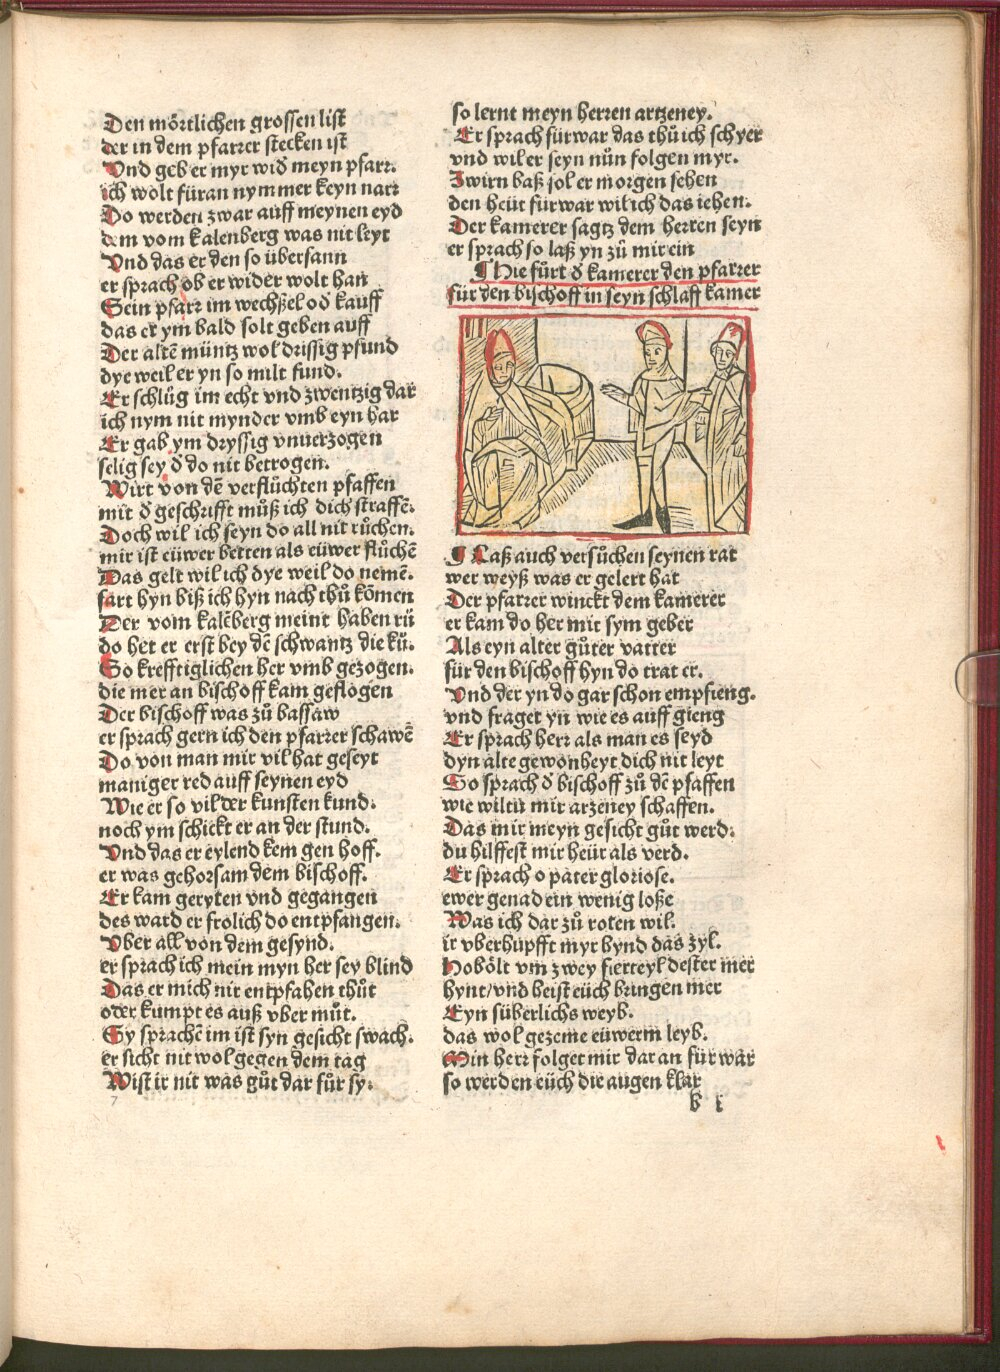 Den mörtlichen grossen list
der in dem pfarrer stecken ist
Vnd geb er myr wid meyn pfarr.
ich wolt füran nymmer keyn narr
Do werden zwar auff meynen eyd
dem vom kalenberg was nit leyt
Vnd das er den so übersann
er sprach ob er wider wolt han
Sein pfarr im wechßel od kauff
das er ym bald solt geben auff
Der altē müntz wol drissig pfund
dye weil er yn so milt fund.
Er schlůg im echt vnd zwentzig dar
ich nym nit mynder vmb eyn har
Er gab ym dryssig vnuerzogen
selig sey d̕ do nit betrogen.
Wirt von dē verflůchten pfaffen
mit d̕ geschrifft můß ich dich straffē.
Doch wil ich seyn do all nit růchen.
mir ist eüwer betten als eüwer flůchē
Das gelt wil ich dye weil do nemē.
fart hyn biß ich hyn nach thů kōmen
Der vom kalēberg meint haben rü
do het er erst bey dē schwantz die ků.
So krefftiglichen her vmb gezogen.
die mer an bischoff kam geflogen
Der bischoff was zů bassaw
er sprach gern ich den pfarrer schawē
Do von man mir vil hat geseyt
maniger red auff seynen eyd
Wie er so vil der kunsten kund.
noch ym schickt er an der stund.
Vnd das er eylend kem gen hoff.
er was gehorsam dem bischoff.
Er kam geryten vnd gegangen
des ward er frolich do entpfangen.
Vber all von dem gesynd.
er sprach ich mein myn her sey blind
Das er mich nit entpfahen thůt
oder kumpt es auß vber můt.
Sy sprachē im ist syn gesicht swach.
er sicht nit wol gegen dem tag
Wist ir nit was gůt dar für sy.
7
so lernt meyn herren artzeney.
Er sprach fürwar das thů ich schyer
vnd wil er seyn nůn folgen myr.
Zwirn baß sol er morgen sehen
den heüt fürwar wil ich das iehen.
Der kamerer sagtz dem herren seyn
er sprach so laß yn zů mir ein
¶ Hie fůrt d̕ kamerer den pfarrer
für den bischoff in seyn schlaff kamer
¶ Laß auch versůchen seynen rat
wer weyß was er gelert hat
Der pfarrer winckt dem kamerer
er kam do her mit sym geber
Als eyn alter gůter vatter
für den bischoff hyn do trat er.
Vnd der yn do gar schon empfieng.
vnd fraget yn wie es auff gieng
Er sprach herr als man es seyd
dyn alte gewonheyt dich nit leyt
So sprach d̕ bischoff zů dē pfaffen
wie wiltu mir arzeney schaffen.
Das mir meyn gesicht gůt werd.
du hilffest mir heür als verd.
Er sprach o pater gloriose.
ewer genad ein wenig loße
Was ich dar zů roten wil.
ir vberhupfft myr hynd das zyl.
Hobölt vm zwey fierteyl dester mer
hynt/vnd heist eüch bringen mer
Eyn süberlichs weyb.
das wol gezeme eüwerm leyb.
Min herr folget mir dar an für war
so werden eüch die augen klar
b i